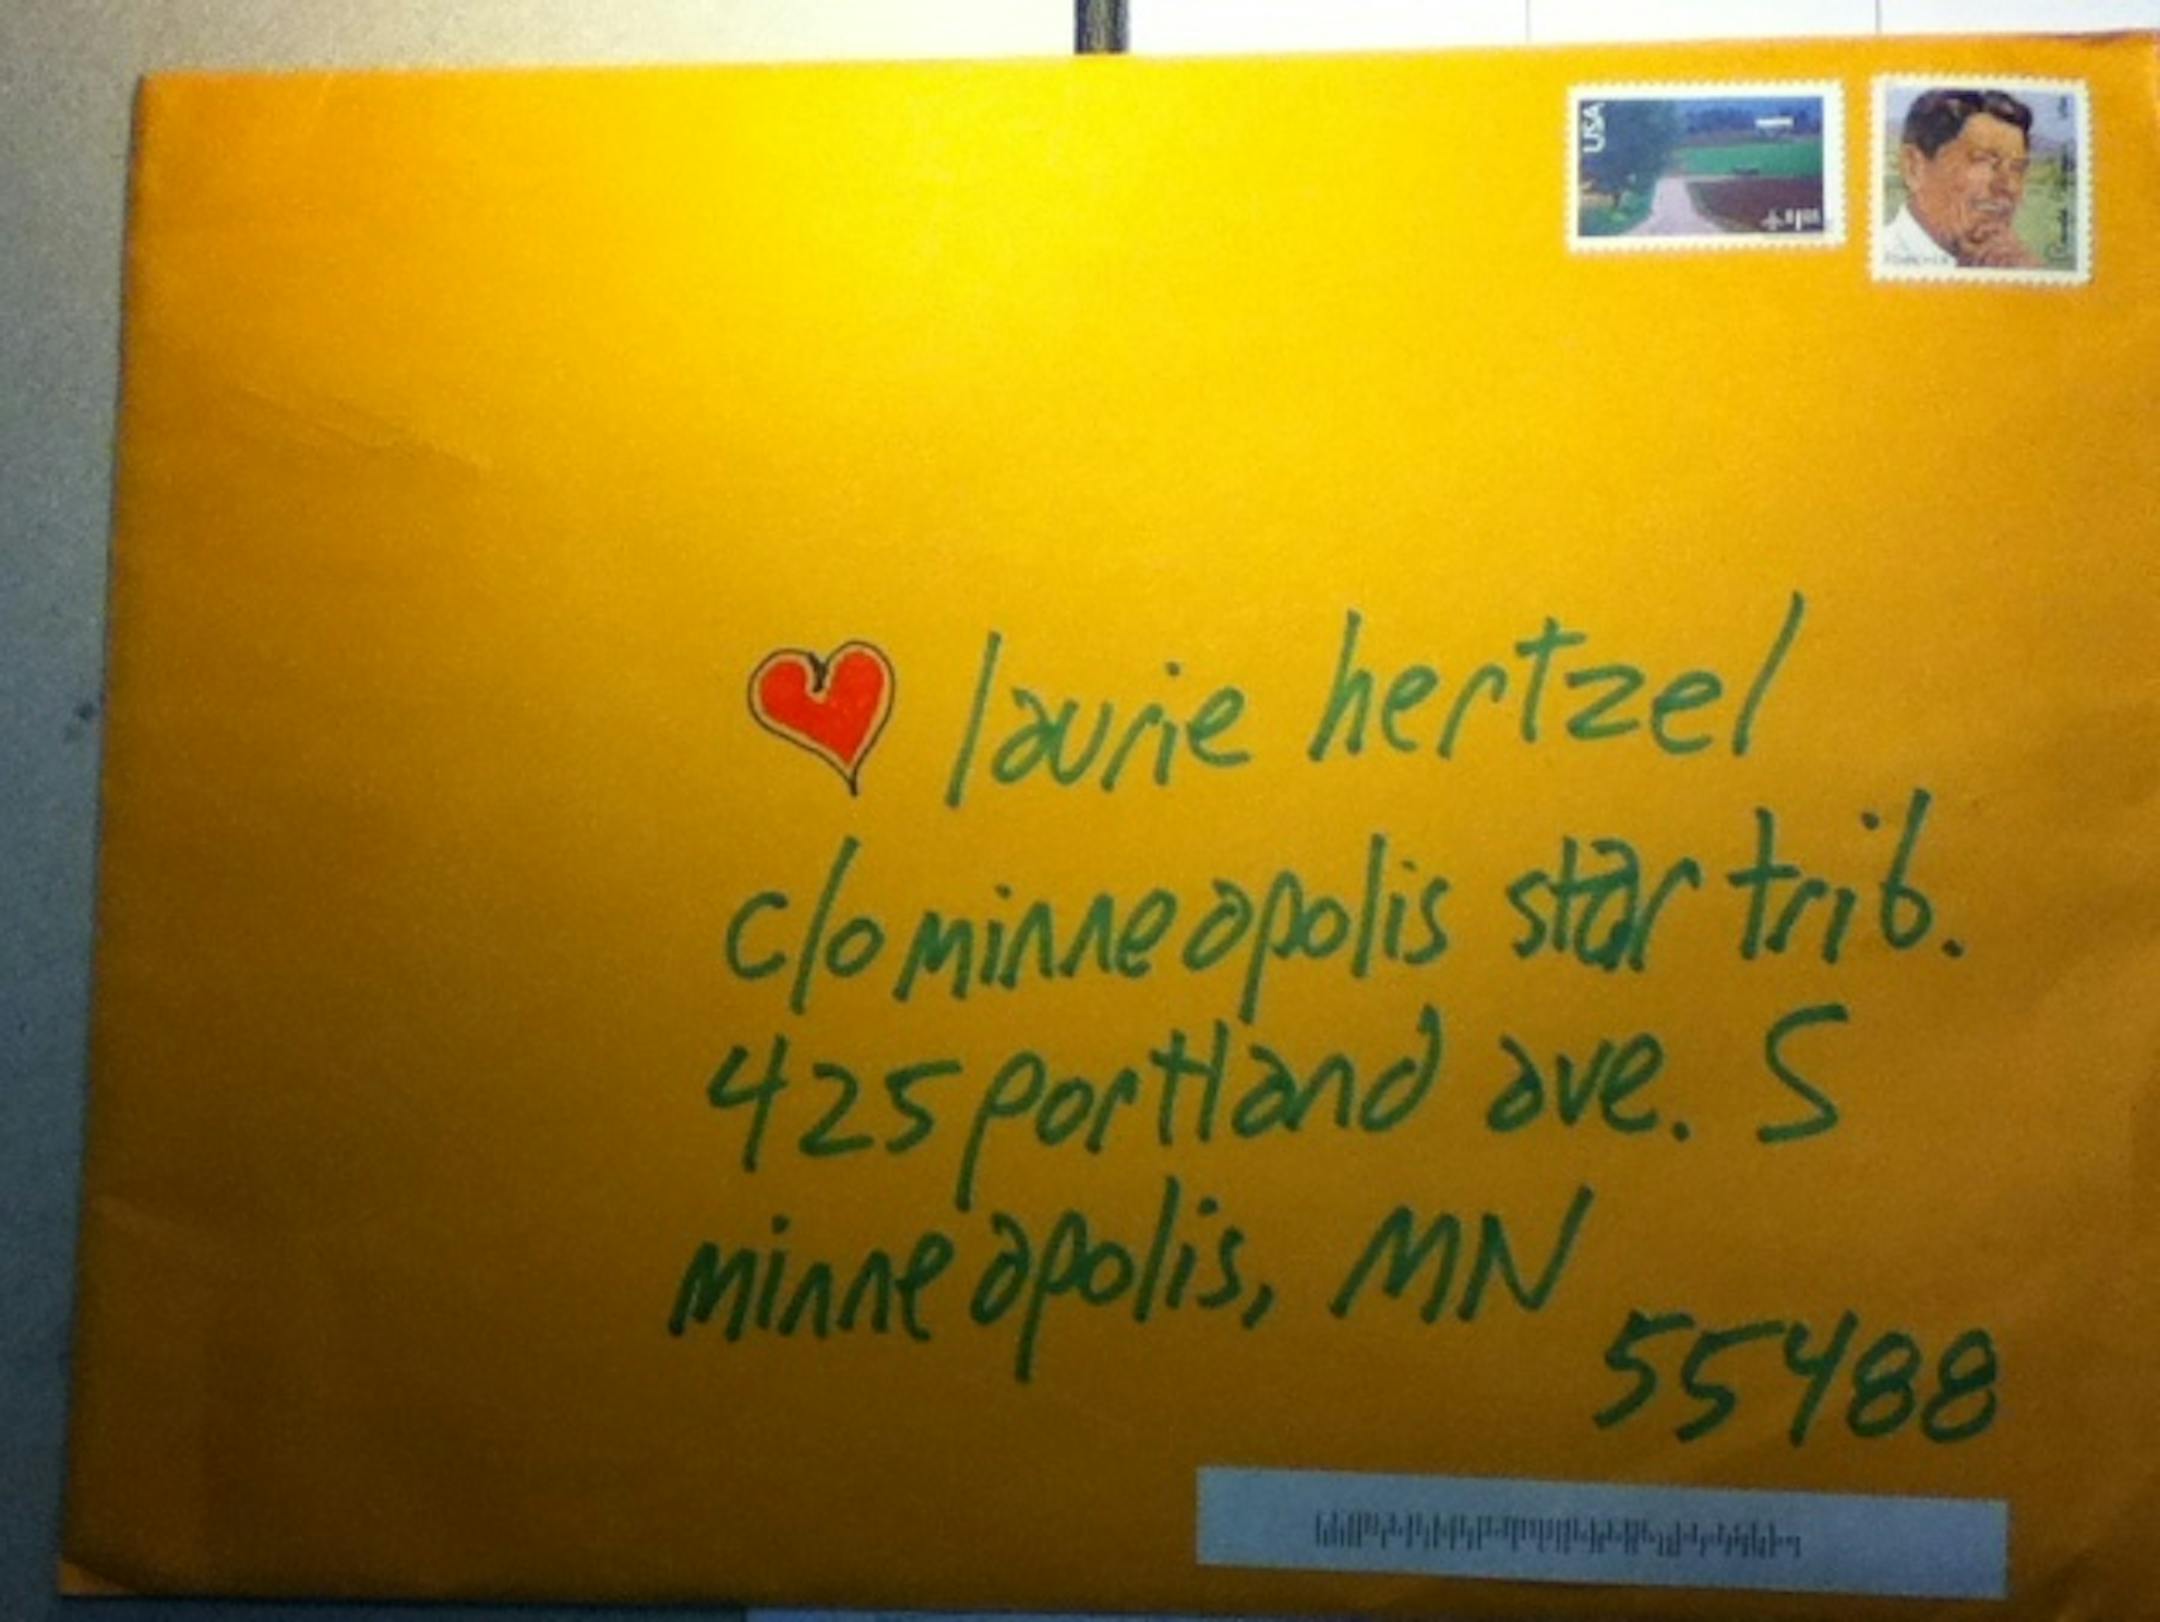 USA
laurie hertzel
c/o minneapolis star trib.
425 portland ave. S
minneapolis, MN
55488